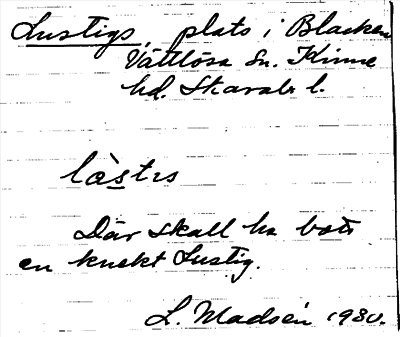 Lustigs, plats i Blacken
Vättlösa Sn. Kinne
hd. Skarab. l.
Där skall ha bott
en knekt Lustig.
L. Madsén 1930.